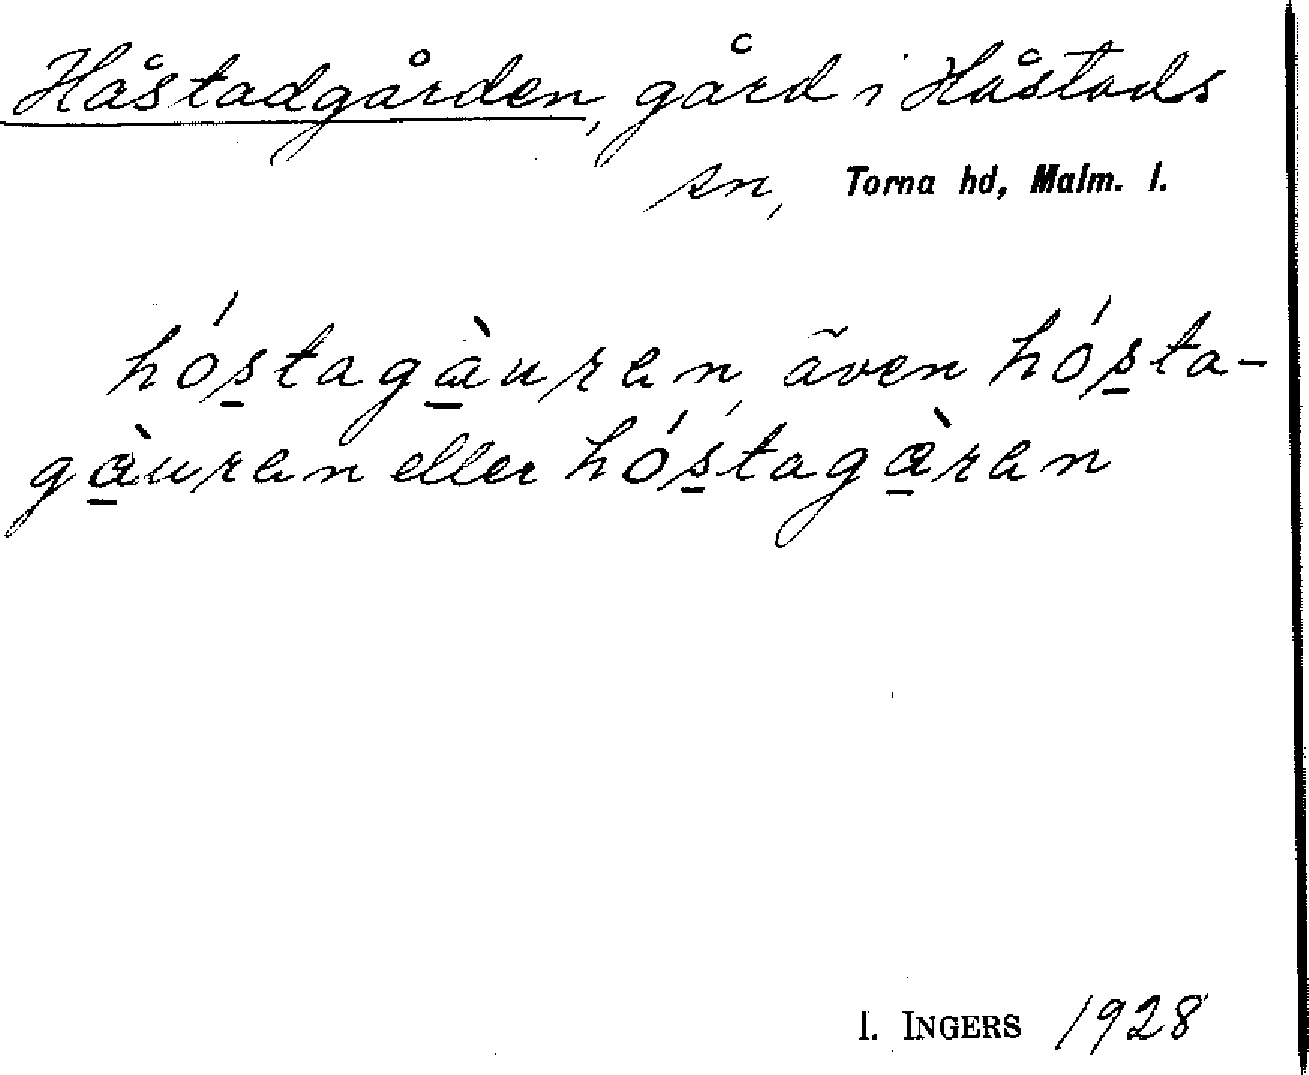 Håstadgården, gård i Håstads
sn, Torna hd, Malm. l.
hós̱tagæ̱̀uran, även hós̱ta-
gæ̱̀uran eller hós̱tagæ̱̀ran
I. INGERS 1928